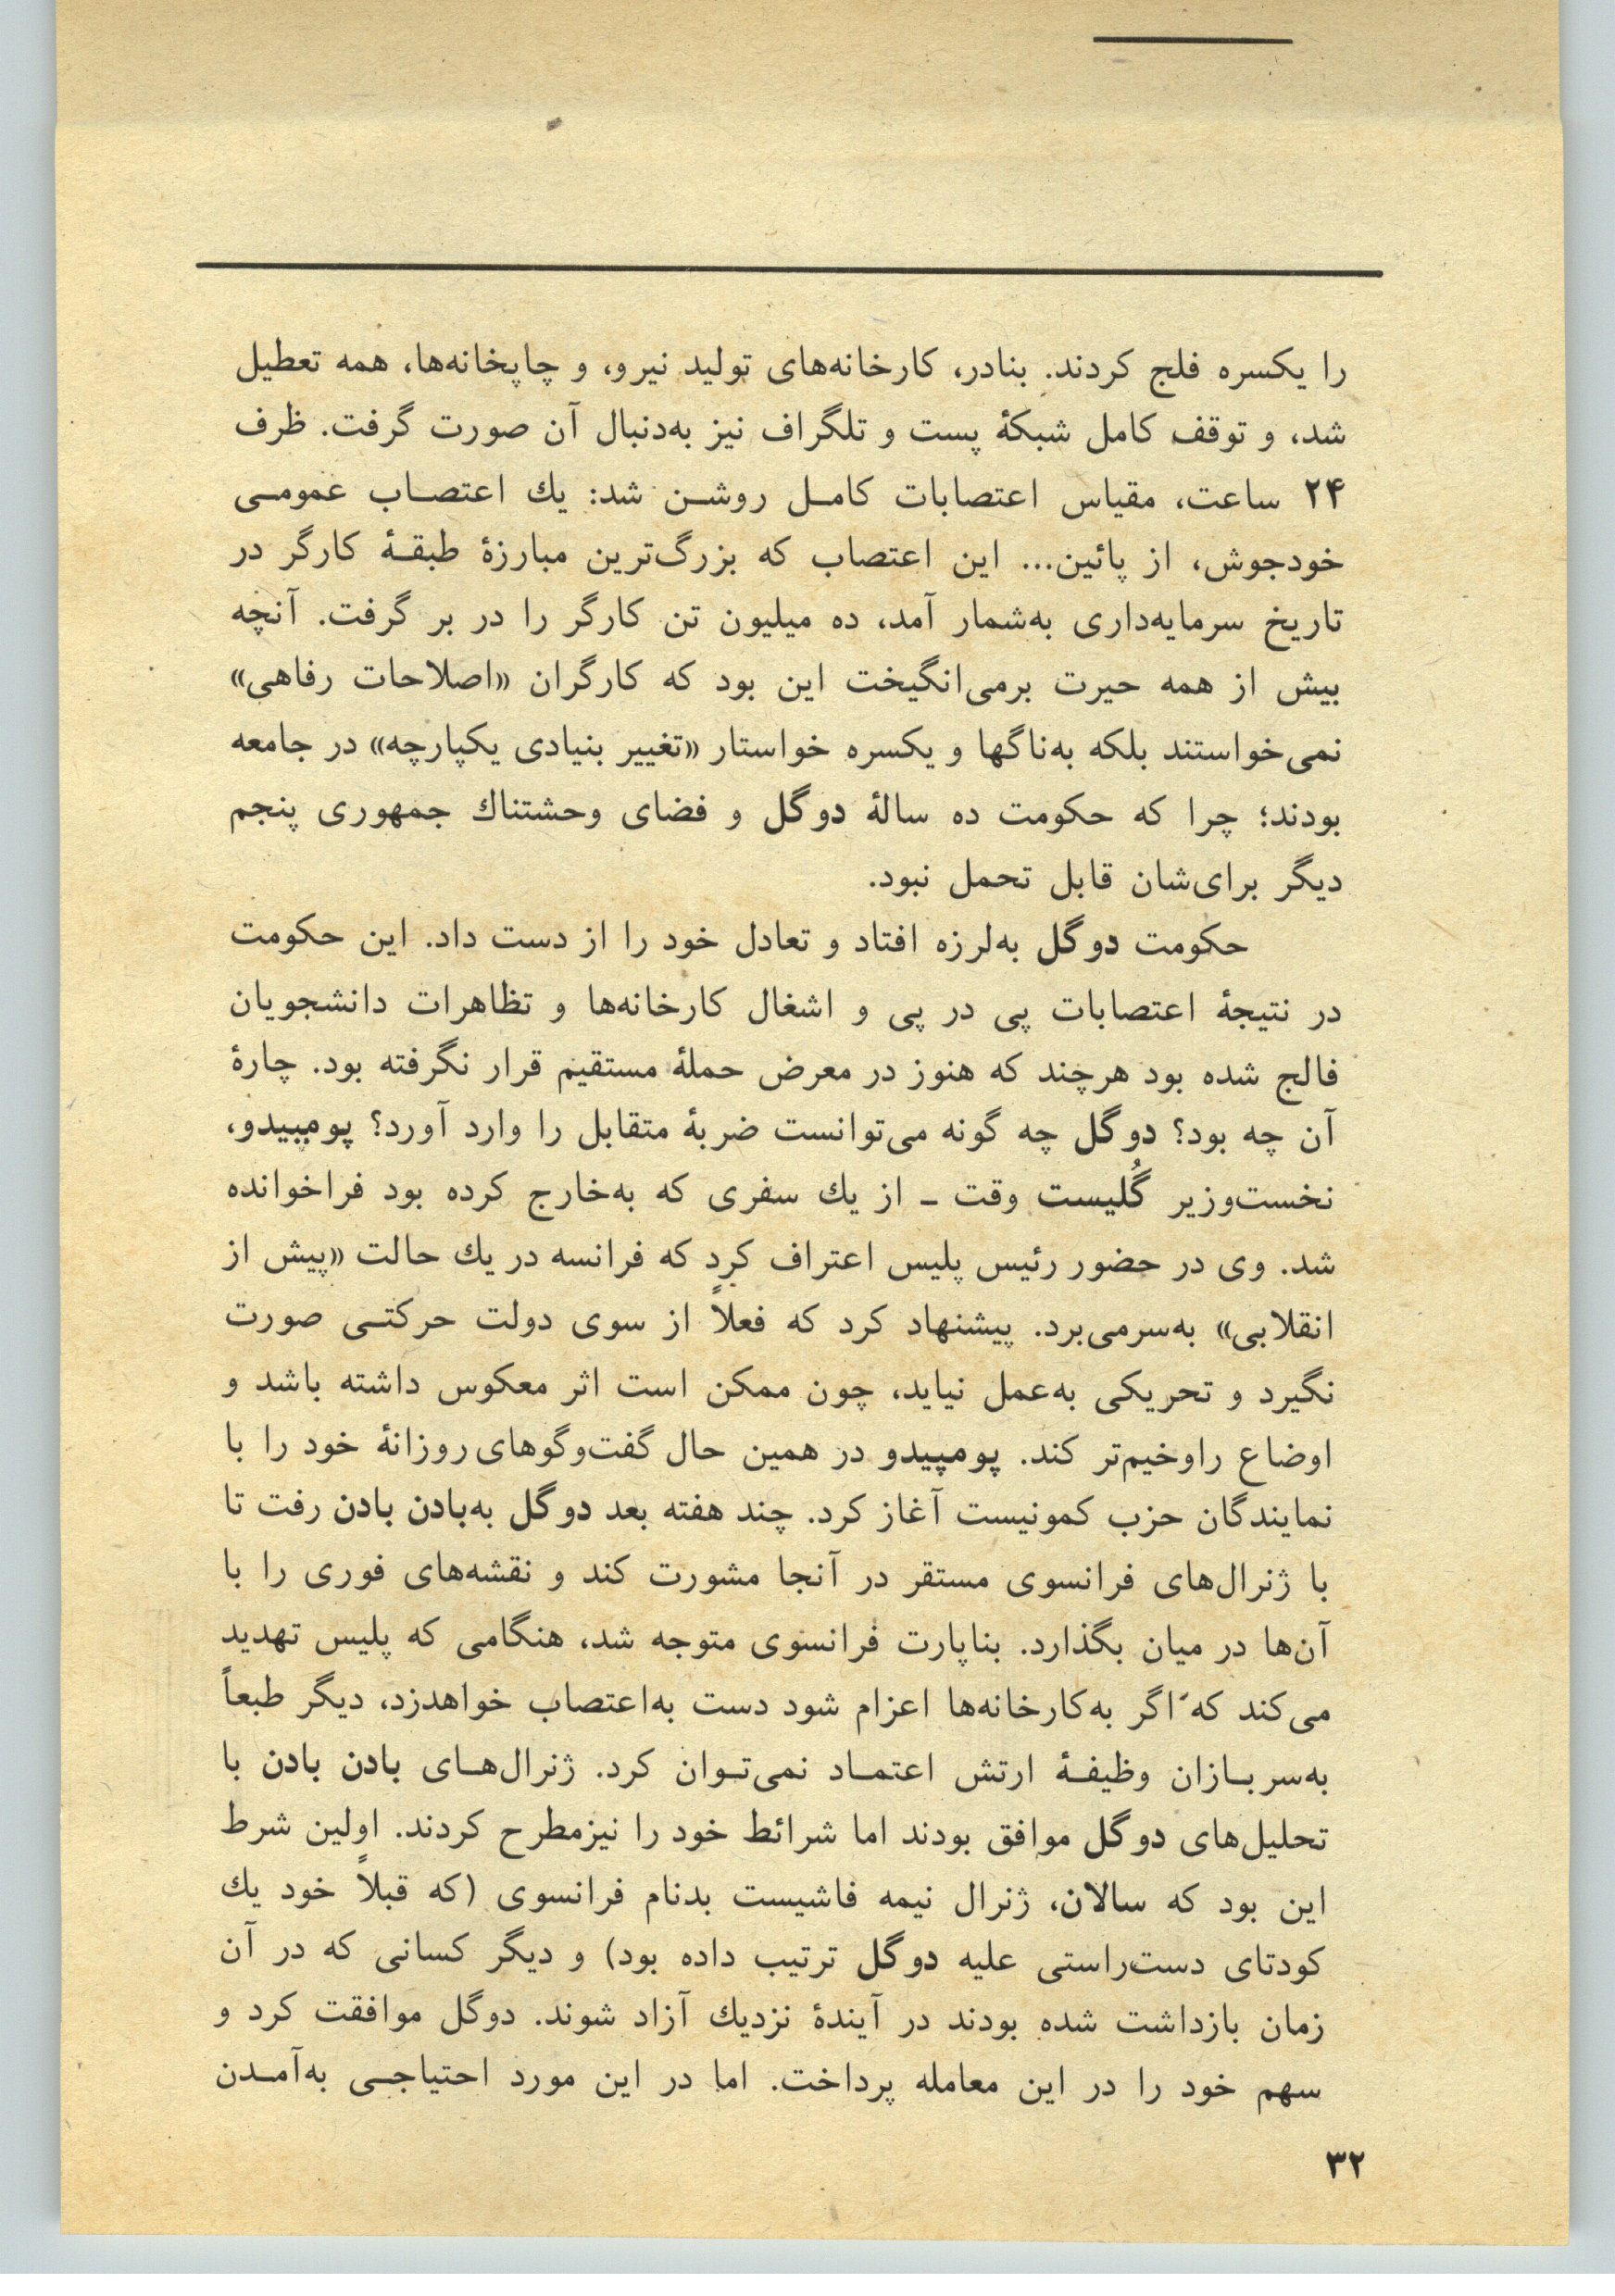 را یکسره فلج کردند. بنادر، کارخانه‌های تولید نیرو، و چاپخانه‌ها، همه تعطیل
شد، و توقف کامل شبکهٔ پست و تلگراف نیز به‌دنبال آن صورت گرفت. ظرف
۲۴ ساعت، مقیاس اعتصابات کامل روشن شد: یك اعتصاب عمومی
خودجوش، از پائین... این اعتصاب که بزرگ‌ترین مبارزهٔ طبقهٔ کارگر در
تاریخ سرمایه‌داری به‌شمار آمد، ده میلیون تن کارگر را در بر گرفت. آنچه
بیش از همه حیرت برمی‌انگیخت این بود که کارگران «اصلاحات رفاهی»
نمی‌خواستند بلکه به‌ناگها و یکسره خواستار «تغییر بنیادی یکپارچه» در جامعه
بودند؛ چرا که حکومت ده سالهٔ دوگل و فضای وحشتناك جمهوری پنجم
دیگر برای‌شان قابل تحمل نبود.
حکومت دوگل به‌لرزه افتاد و تعادل خود را از دست داد. این حکومت
در نتیجهٔ اعتصابات پی در پی و اشغال کارخانه‌ها و تظاهرات دانشجویان
فالج شده بود هرچند که هنوز در معرض حملهٔ مستقیم قرار نگرفته بود. چارهٔ
آن چه بود؟ دوگل چه گونه می‌توانست ضربهٔ متقابل را وارد آورد؟ پومپیدو،
نخست‌وزیر گُلیست وقت ـ از یك سفری که به‌خارج کرده بود فراخوانده
شد. وی در حضور رئیس پلیس اعتراف کرد که فرانسه در یك حالت «پیش از
انقلابی» به‌سرمی‌برد. پیشنهاد کرد که فعلاً از سوی دولت حرکتی صورت
نگیرد و تحریکی به‌عمل نیاید، چون ممکن است اثر معکوس داشته باشد و
اوضاع راوخیم‌تر کند. پومپیدو در همین حال گفت‌وگوهای روزانهٔ خود را با
نمایندگان حزب کمونیست آغاز کرد. چند هفته بعد دوگل به‌بادن بادن رفت تا
با ژنرال‌های فرانسوی مستقر در آنجا مشورت کند و نقشه‌های فوری را با
آن‌ها در میان بگذارد. بناپارت فرانسوی متوجه شد، هنگامی که پلیس تهدید
می‌کند که اگر به‌کارخانه‌ها اعزام شود دست به‌اعتصاب خواهدزد، دیگر طبعاً
به‌سربازان وظیفهٔ ارتش اعتماد نمی‌توان کرد. ژنرال‌های بادن بادن با
تحلیل‌های دوگل موافق بودند اما شرائط خود را نیزمطرح کردند. اولین شرط
این بود که سالان، ژنرال نیمه فاشیست بدنام فرانسوی (که قبلاً خود یك
کودتای دست‌راستی علیه دوگل ترتیب داده بود) و دیگر کسانی که در آن
زمان بازداشت شده بودند در آیندهٔ نزدیك آزاد شوند. دوگل موافقت کرد و
سهم خود را در این معامله پرداخت. اما در این مورد احتیاجی به‌آمدن
۳۲